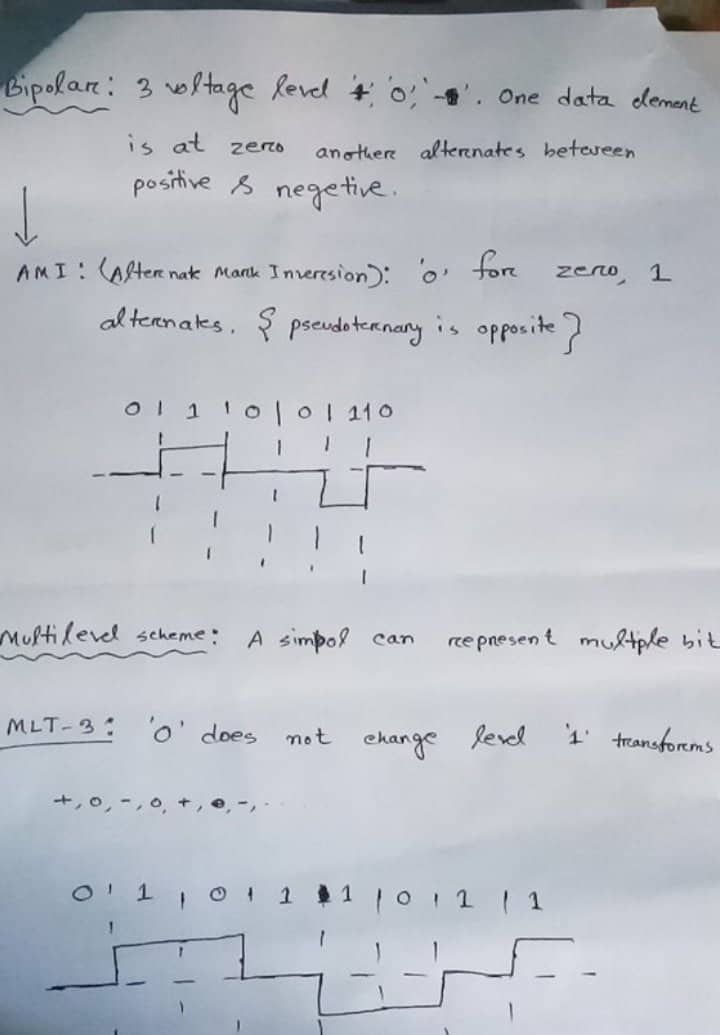 Bipolar: 3 voltage level '+', '0', '-'. One data element
is at zero another alternates between
positive & negetive.
AMI: (Alternate Mark Inversion): '0' for zero, 1
alternates. { pseudoternary is opposite }
0 1 0 0 1 0
Multilevel scheme: A simbol can represent multple bit
MLT-3: '0' does not change level '1' transforms
+, 0, -, 0, +, 0, -, .....
0 1 0 1 1 0 1 1